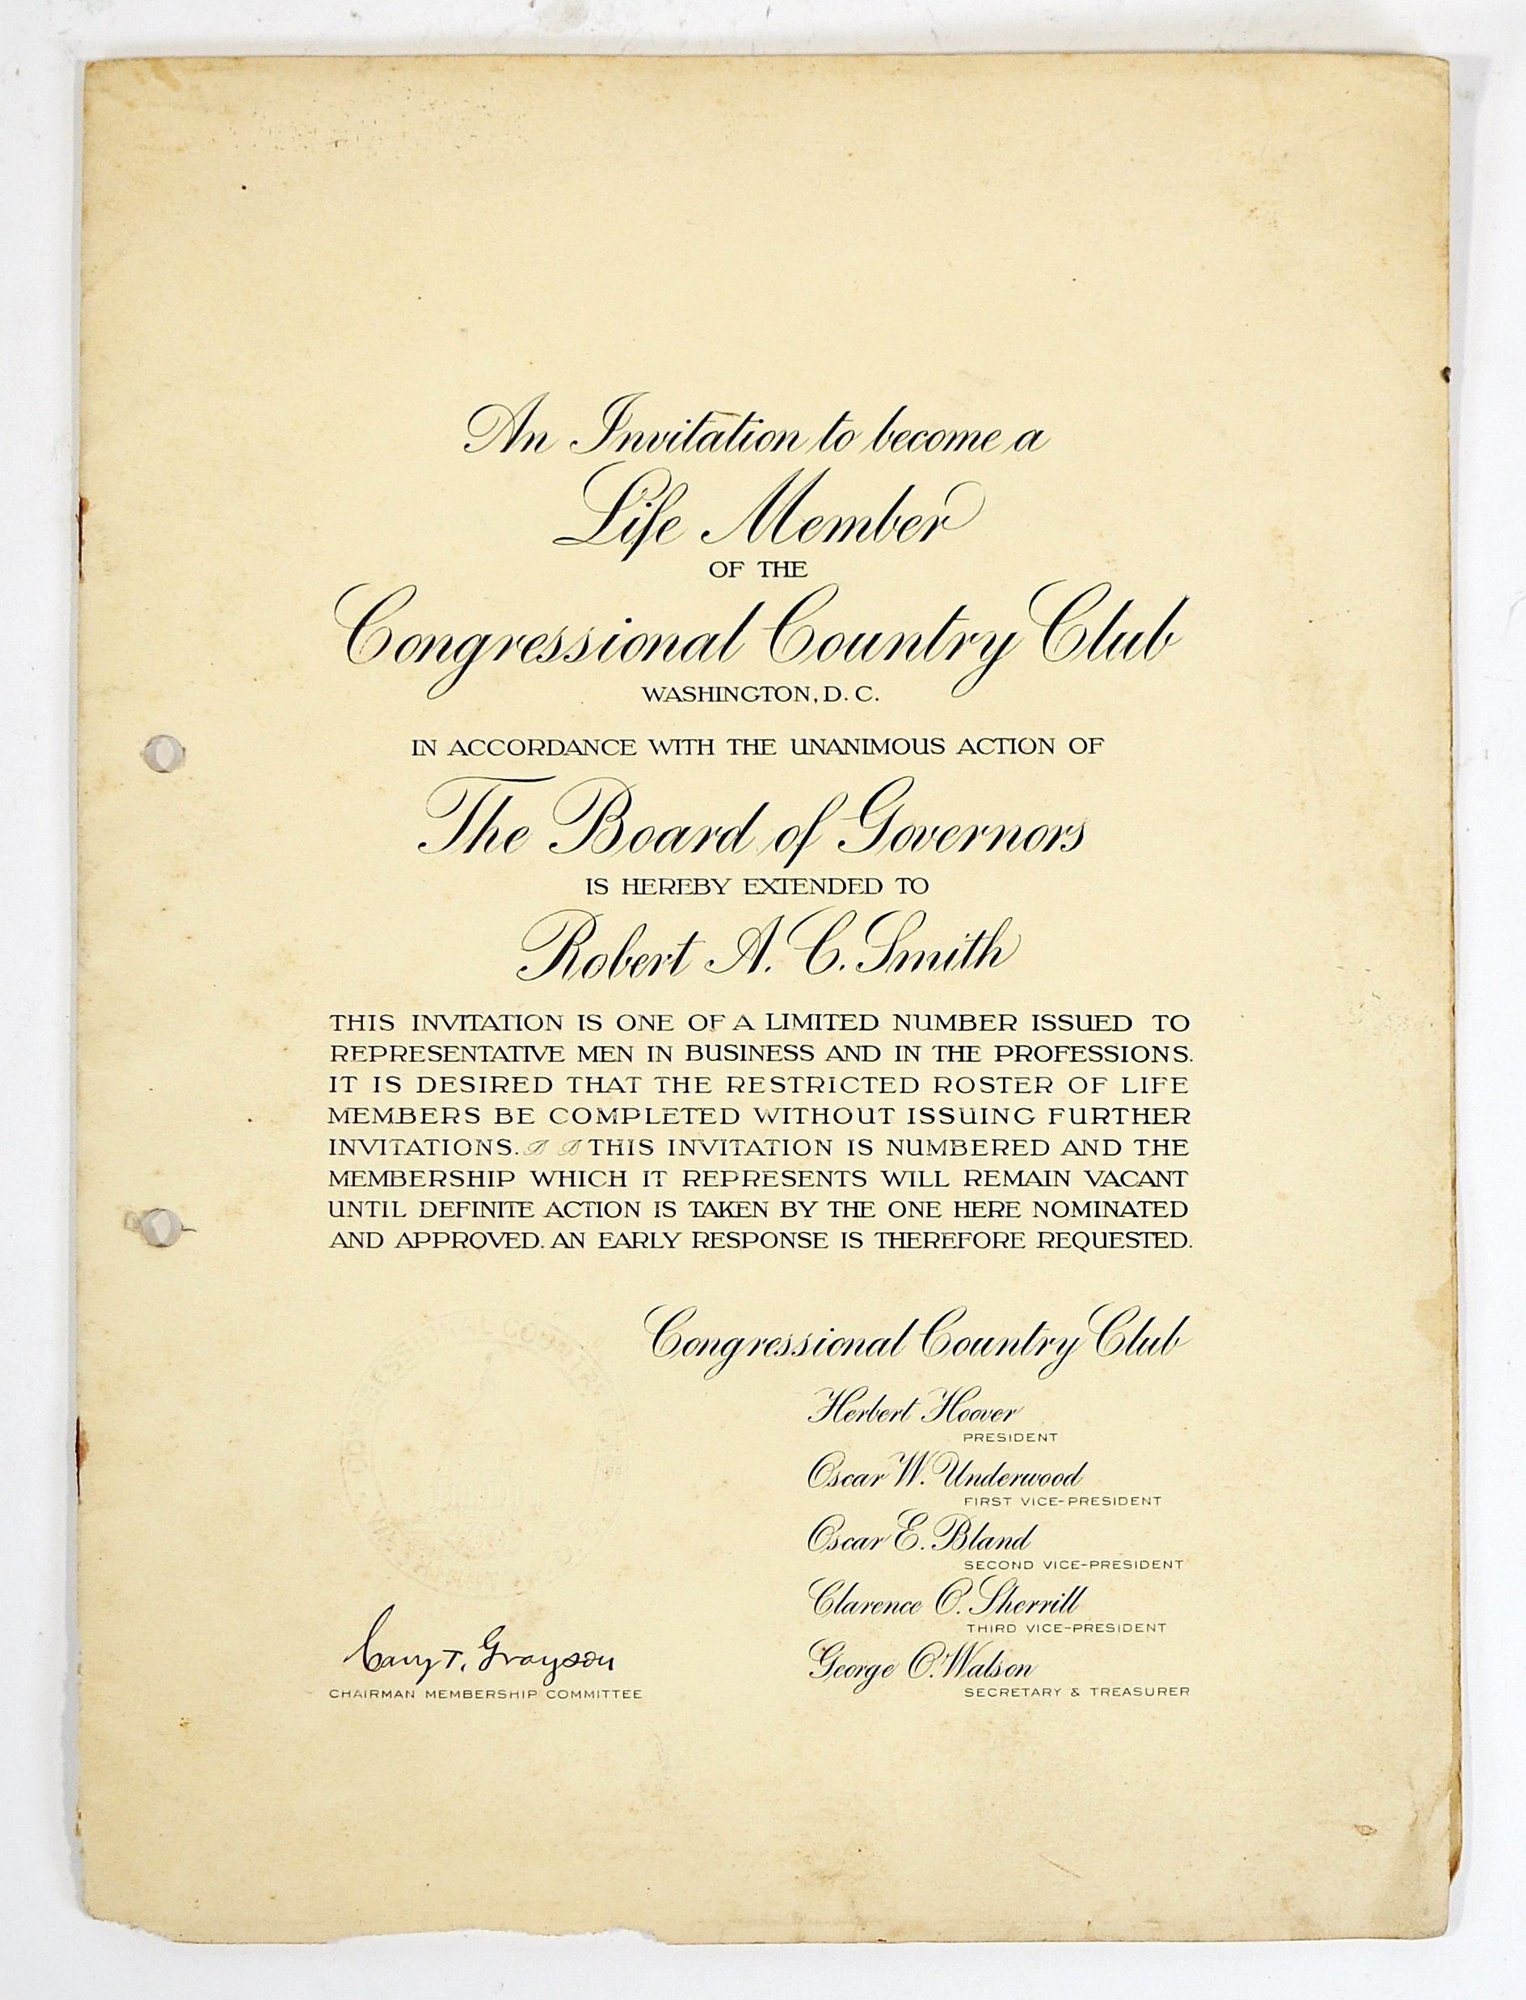 An Invitation to become a
Life Member
OF THE
Congressional Country Club
WASHINGTON, D. C.
IN ACCORDANCE WITH THE UNANIMOUS ACTION OF
The Board of Governors
IS HEREBY EXTENDED TO
Robert A. C. Smith
THIS INVITATION IS ONE OF A LIMITED NUMBER ISSUED TO
REPRESENTATIVE MEN IN BUSINESS AND IN THE PROFESSIONS.
IT IS DESIRED THAT THE RESTRICTED ROSTER OF LIFE
MEMBERS BE COMPLETED WITHOUT ISSUING FURTHER
INVITATIONS. THIS INVITATION IS NUMBERED AND THE
MEMBERSHIP WHICH IT REPRESENTS WILL REMAIN VACANT
UNTIL DEFINITE ACTION IS TAKEN BY THE ONE HERE NOMINATED
AND APPROVED. AN EARLY RESPONSE IS THEREFORE REQUESTED.
Congressional Country Club
Herbert Hoover
PRESIDENT
Oscar W. Underwood
FIRST VICE-PRESIDENT
Oscar E. Bland
SECOND VICE-PRESIDENT
Clarence O. Sherrill
THIRD VICE-PRESIDENT
George O. Watson
SECRETARY & TREASURER
Cary T. Grayson
CHAIRMAN MEMBERSHIP COMMITTEE